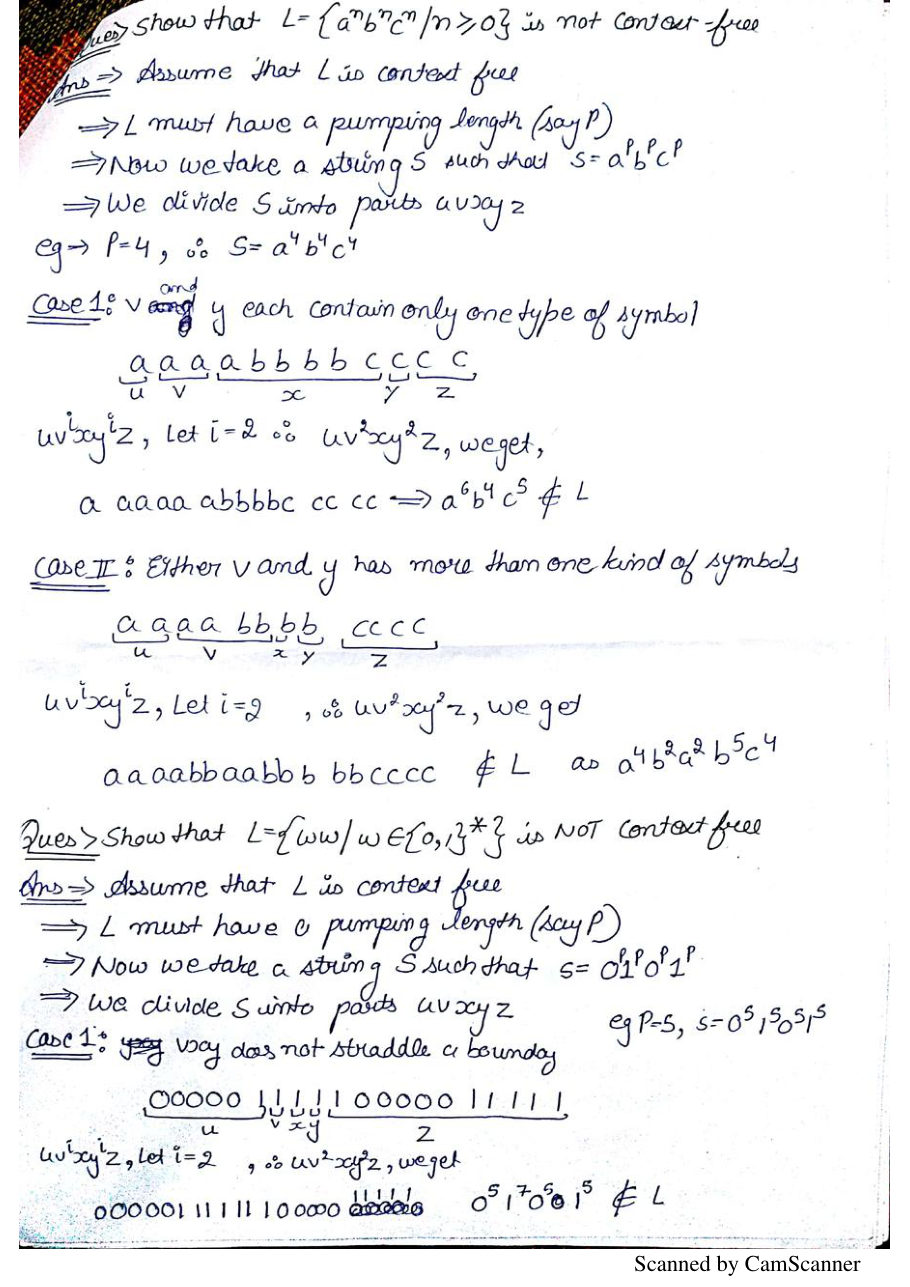 Ques> Show that L= {aⁿbⁿcⁿ/n≥0} is not context-free
Ans ⇒ Assume that L is context free
⇒ L must have a pumping length (say P)
⇒ Now we take a string S such that S= aᴾbᴾcᴾ
⇒ We divide S into parts uvxyz
eg → P=4, ∴ S= a⁴b⁴c⁴
Case 1: v and y each contain only one type of symbol
a a a a b b b b c c c c
u v x y z
uvⁱxyⁱz, Let i=2 ∴ uv²xy²z, we get,
a aaaa abbbbc cc cc ⇒ a⁶b⁴c⁵ ∉ L
Case II: Either v and y has more than one kind of symbols
a a a a bb bb cccc
u v x y z
uvⁱxyⁱz, Let i=2 , ∴ uv²xy²z, we get
aaaabbaabbb bbcccc ∉ L as a⁴b²a²b⁵c⁴
Ques> Show that L={ww/w∈{0,1}*} is NOT Context free
Ans ⇒ Assume that L is context free
⇒ L must have a pumping length (say P)
⇒ Now we take a string S such that s= 0ᴾ1ᴾ0ᴾ1ᴾ
⇒ We divide S into parts uvxyz
eg P=5, s=0⁵1⁵0⁵1⁵
Case 1: vxy does not straddle a bounday
00000 11111 00000 11111
u v x y z
uvⁱxyⁱz, Let i=2 , ∴ uv²xy²z, we get
00000 1111111 00000 11111 0⁵1⁷0⁵1⁵ ∉ L
Scanned by CamScanner